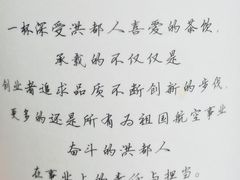 一杯深受洪都人喜爱的茶饮,
承载的不仅仅是
创业者追求品质不断创新的步伐,
更多的还是所有为祖国航空事业
奋斗的洪都人
在事业上的责任与担当。